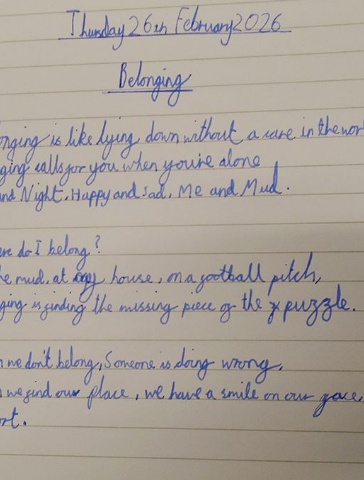 Thursday 26th February 2026
Belonging
onging is like lying down without a care in the wor
ging calls for you when you're alone
nd Night. Happy and sad. Me and Mud.
ere do I belong?
he mud, at my house, on a football pitch,
ging is finding the missing piece of the puzzle.
n we don't belong, Someone is doing wrong,
s we find our place, we have a smile on our face,
ort.